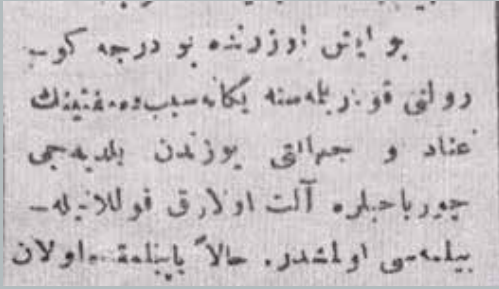 بو ایش اوزرنده بو درجه كو-
رولتی قوپاریلمه‌سنه یگانه سبب ده مفتینك
عناد و جهالتی یوزندن بلدیه‌جی
چورباجیلره آلت اولارق قوللانیله-
بیلمه‌سی اولمشدر. حالاً یاپیلمقده اولان